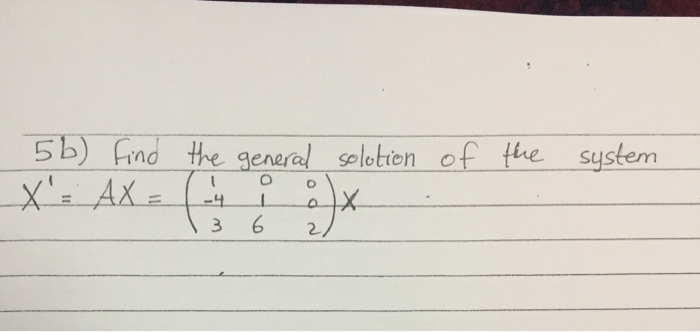 5b) find the general solotion of the system
X' = AX = ( 1 0 0
-4 1 0
3 6 2 ) X